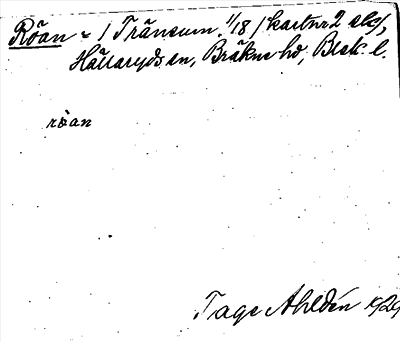 Röan = 1 Tränsum. 1/18 / kartnr 2
Hällaryds sn, Bräkne hd, Blek. l.
röan
Tage Ahldén 1929